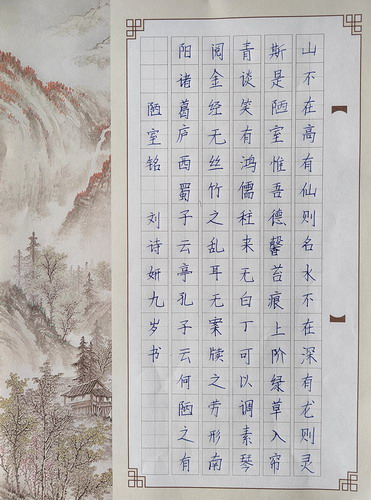 山不在高有仙则名水不在深有龙则灵
斯是陋室惟吾德馨苔痕上阶绿草入帘
青谈笑有鸿儒往来无白丁可以调素琴
阅金经无丝竹之乱耳无案牍之劳形南
阳诸葛庐西蜀子云亭孔子云何陋之有
陋室铭 刘诗妍九岁书